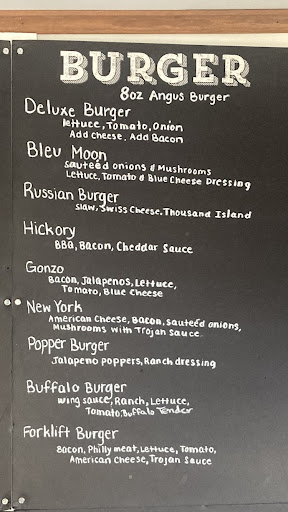 BURGER
8oz Angus Burger
Deluxe Burger
lettuce, Tomato, Onion
Add Cheese, Add Bacon
Bleu Moon
Sauteed onions & Mushrooms
Lettuce, Tomato & Blue Cheese Dressing
Russian Burger
Slaw, Swiss Cheese, Thousand Island
Hickory
BBQ, Bacon, Cheddar Sauce
Gonzo
Bacon, Jalapenos, Lettuce,
Tomato, Blue Cheese
New York
American Cheese, Bacon, sauteed onions,
Mushrooms with Trojan Sauce
Popper Burger
Jalapeno poppers, Ranch dressing
Buffalo Burger
wing sauce, Ranch, Lettuce,
Tomato, Buffalo Tender
Forklift Burger
Bacon, Philly meat, Lettuce, Tomato,
American Cheese, Trojan Sauce